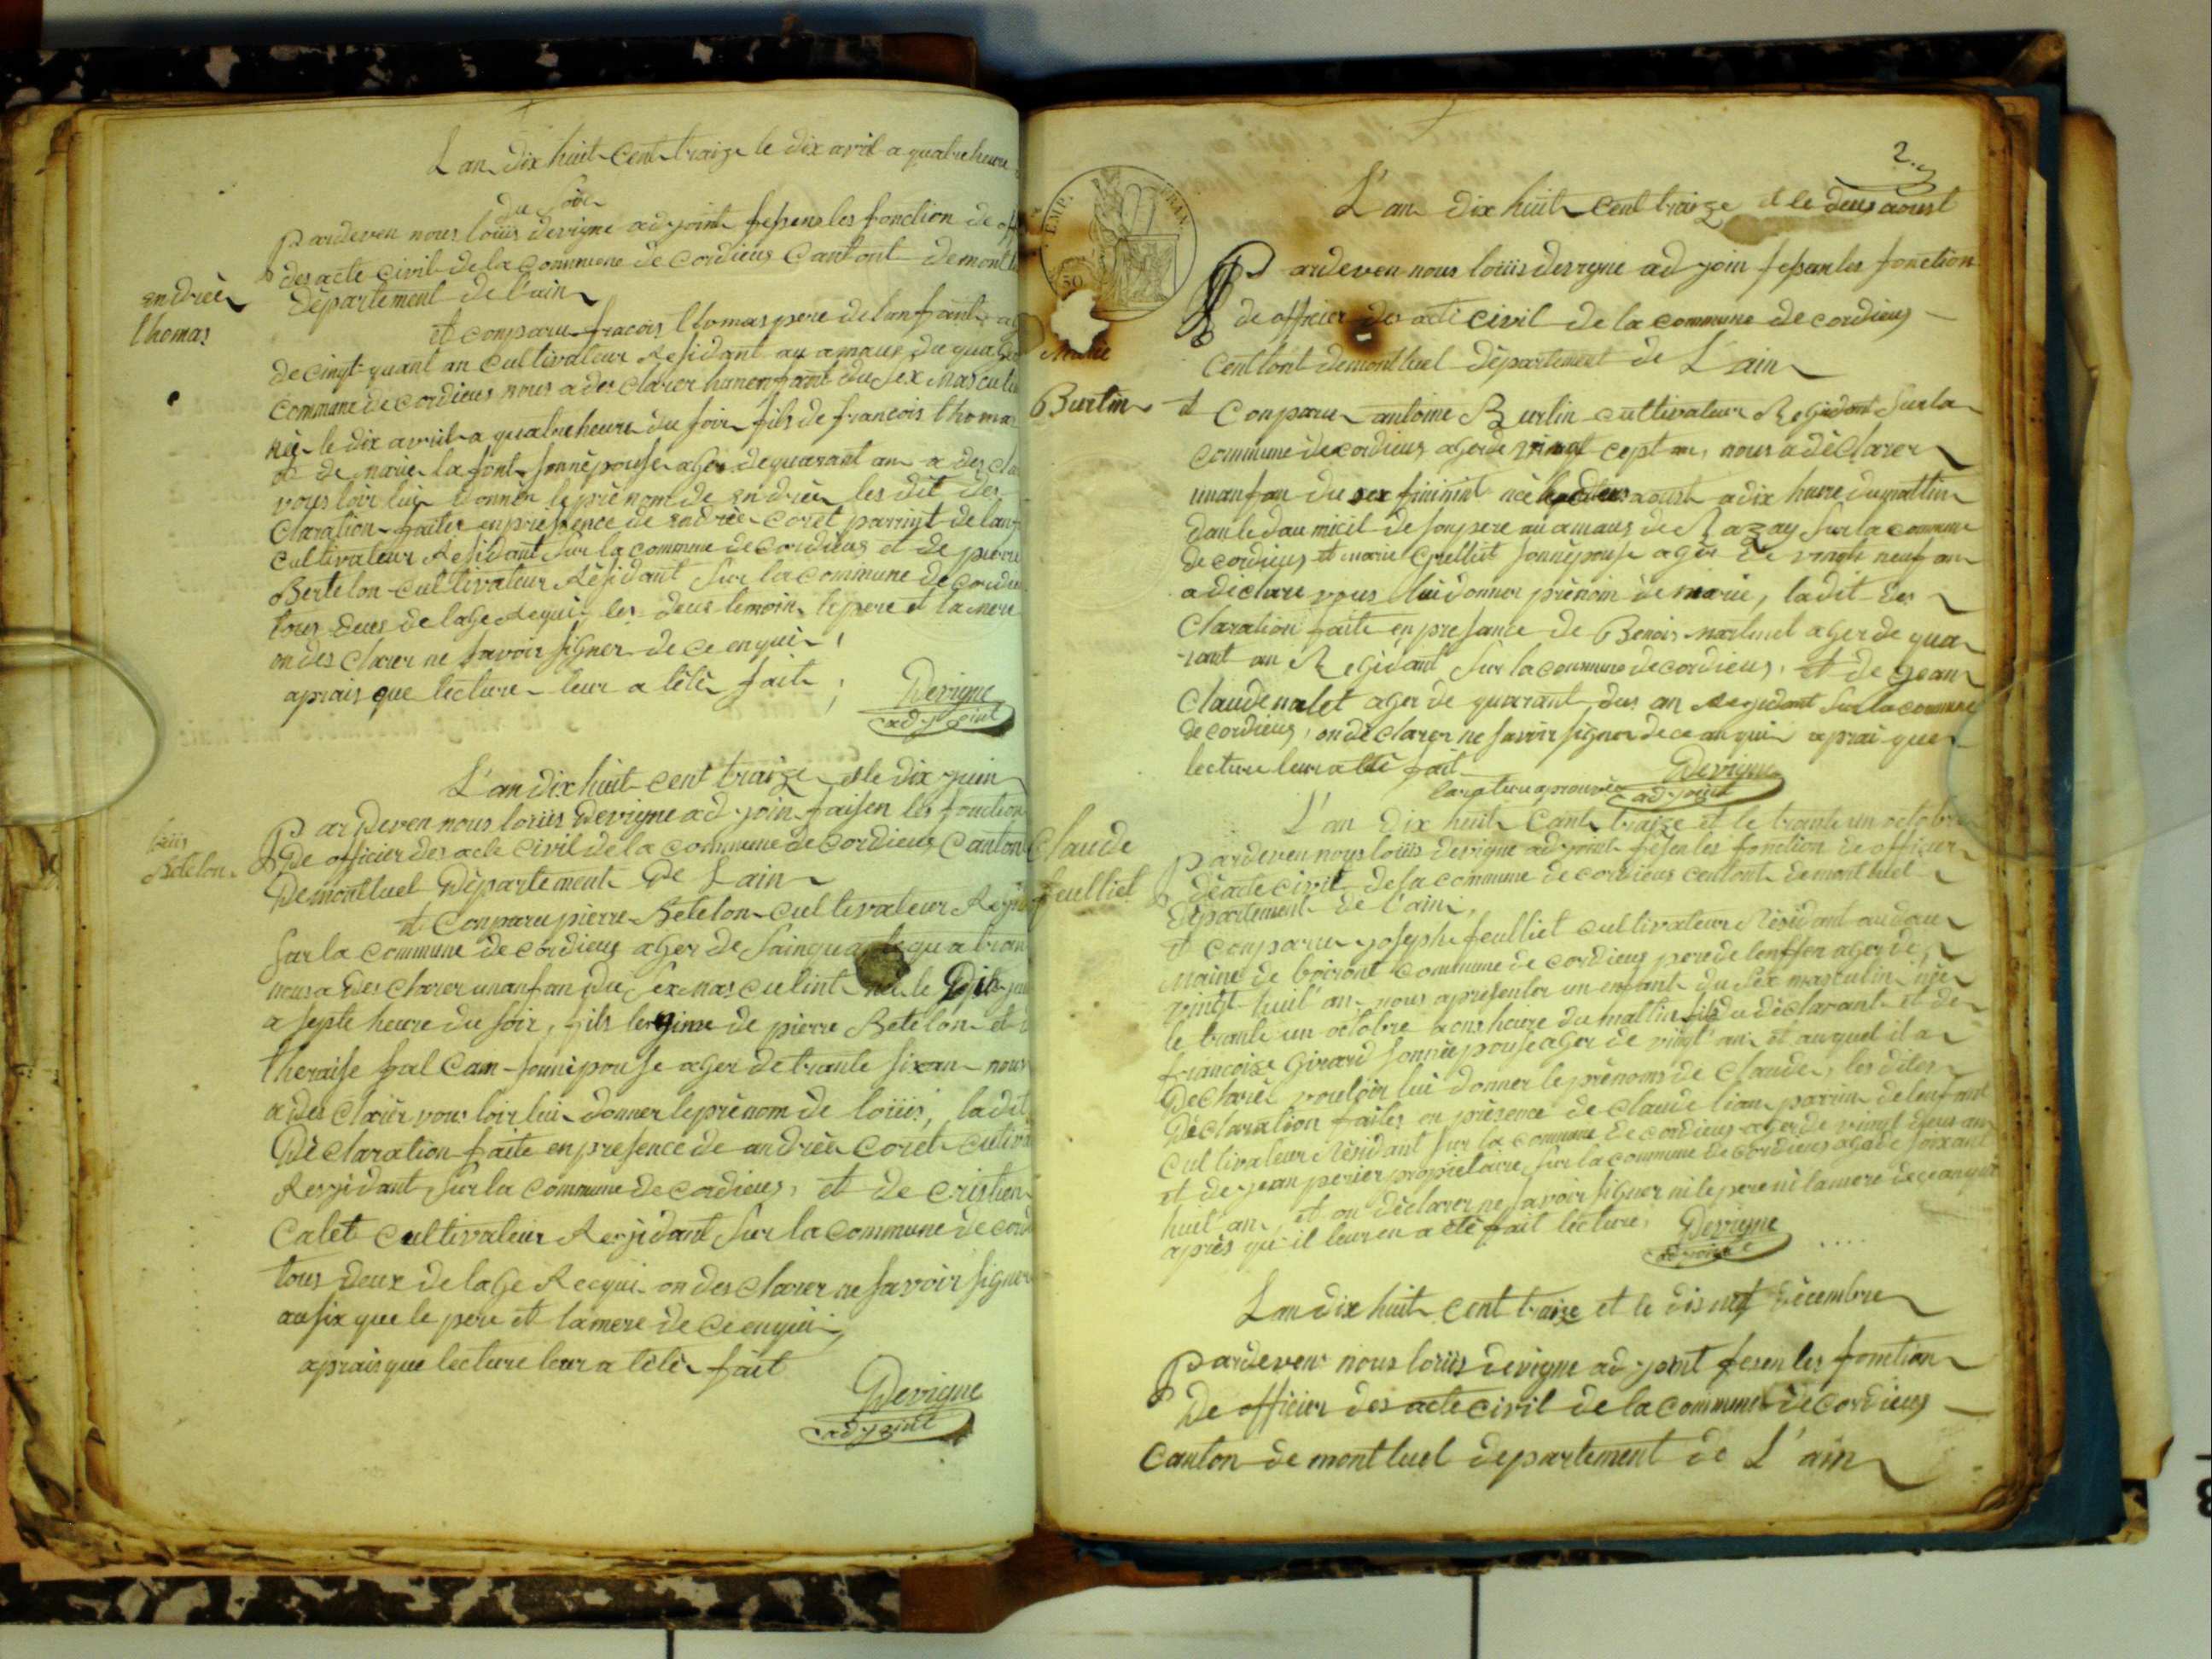 L an Dix huit Cent traize le dix avril a quatre heure
du soir
Pardeven nous loüis devigne adjoint fesens les fonction de of
des acte Civil de la Commune de Cordieus Cantont de montl
Département de l'ain
endrée
thomas
et conparu fracois thomas pere de lanfrant
de cinqt quant an cultivateur Residant au amaus du
Commune de Cordieus nous a des clarer hunenfant du sex masculin
née le dix avril a quatre heure du soir fils de francois thomas
et de marie la font sonnépouse ager de quarant an a des cla
vous loir lui donnér le prénom de endrée les dit des
Claration faites en presence de endrée Coret parrint de lanf
Cultivateur Residant sur la commune de Cordieus et de pierre
Bertelon Cultivateur Résidant sur la commune de Cordieu
tous deus de lage Requi les deus temoin le pere et la mere
on des clarer ne savoir signer de ce enqui
aprais que lecture leur a tété fait
Devigne
adjoint
L'an dix huit cent traize et le dix juin
loüis
Betelon
Par Deven nous loüis Devigne adjoin faisen les fonction
De officier des acte Civil de la commune de Cordieus Canton
De montluel Département De Lain
et Conparu pierre Betelon Cultivateur Rezi
sur la commune de Cordieus ager de sainquante quatran
nous a Des Clarer unanfan du sex mas culint née le Dix jui
a septe heure du soir, fils legime de pierre Betelon et
theraise fal Can sonnépouse ager de trante sixan nous
a des Clarér vous loir lui donner le prénom de loüis, la dit
Déclaration faite en presence de andréa Coret cutiva
Rezjidant sur la Commune de Cordieus, et de Cristien
Calet Cultivateur Rezjidant sur la Commune de Cord
tous deux de lage Recqui on des clarer ne savoir signer
ausix que le pere et la mere de ce enqui
aprais que lecture leur a tété fait
Devigne
adjoint
2
EMP. FRAN.
50
L'an dix huit Cent traize et le deus aoust
Pardeven nous loüis devigne adjoin fesan les fonction
de officier des acte Civil de la commune de cordieus
Centtont demontluel département de L'ain
Marie
Burtin
et Conparu antoine Burtin cultivateur Rezidant sur la
Commune de cordieus ager de vingt cept an, nous a déclarer
unanfan du sex fininint née le deus aoust a dix heure du mattin
dan le dau micil de son pere au amaus de Razay sur la commune
de cordieus et marie Grelliet sonnépouse agér de vingt neuf an
a déclare vous lui donner prénom de marie, ladit des
Claration faite en presance de Benois martinet ager de qua
rant an Rezidant sur la commune de cordieus, et de jean
Claude nalet ager de quarant deus an Rezidant sur la commune
de cordieus, on déclarer ne savoir signer de ce anqui aprai que
lecture leur a tété fait
laration aprouvée
Devigne
adjoint
L'an Dix huit Cant traize et le trante un octobre
Claude
feulliet
Pardeven nous loüis devigne adjoint fesen les fonction de officier
dé acte civil de la commune de cordieus centont de mont luel
Département de l'ain,
et conparu joseph feulliet cultivateur Résidant au dau
maine de boiront commune de cordieus pere de lenffen ager de
vingt huit an nous a présenter un enfant du sex masculin née
le trante un octobre a ons heure du mattin fils du déclarant et de
francoise Girard sonnépouse ager de vingt an et auquel il a
Déclaré vouloir lui donner le prénoms de Claude, les dites
Déclaration faites en présence de Claude lian parrin de lenfant
Cultivateur Résidant sur la commune de cordieus ager de vingt deus an
et de jean perier propriétaire sur la commune de cordieus age de soixant
huit an, et on déclarer ne savoir signer ni le pere ni la mere de ce anqui
après qu'il leur en a été fait lecture,
Devigne
adjoint
Lan dix huit cent traize et le dis neuf décembre
Pardeven nous loüis devigne adjoint fesen les fonction
De officier des acte civil de la commune de Cordieus
Canton de mont luel departement de L'ain